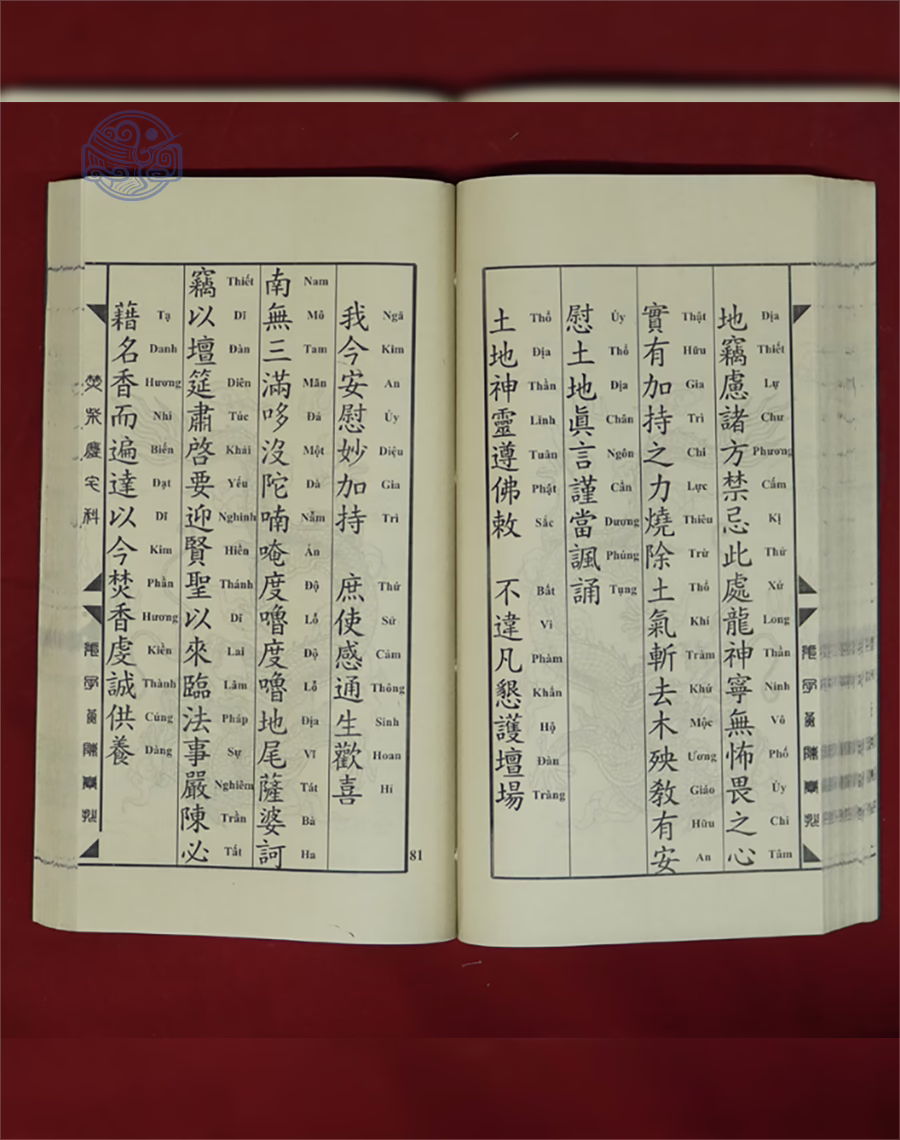 地竊慮諸方禁忌此處龍神寧無怖畏之心
Địa Thiết Lự Chư Phương Cấm Kị Thử Xứ Long Thần Ninh Vô Phố Úy Chi Tâm
實有加持之力燒除土氣斬去木殃敎有安
Thật Hữu Gia Trì Chi Lực Thiêu Trừ Thổ Khí Trảm Khứ Mộc Ương Giáo Hữu An
慰土地眞言謹當諷誦
Úy Thổ Địa Chân Ngôn Cẩn Dương Phúng Tụng
土地神靈遵佛敕 不違凡懇護壇場
Thổ Địa Thần Linh Tuân Phật Sắc Bất Vi Phàm Khẩn Hộ Đàn Tràng
我今安慰妙加持 庶使感通生歡喜
Ngã Kim An Úy Diệu Gia Trì Thứ Sử Cảm Thông Sinh Hoan Hỉ
南無三滿哆沒陀喃唵度嚕度嚕地尾薩婆訶
Nam Mô Tam Mãn Đá Một Đà Nẫm Án Độ Lỗ Độ Lỗ Địa Vĩ Tát Bà Ha
竊以壇筵肅啓要迎賢聖以來臨法事嚴陳必
Thiết Dĩ Đàn Diên Túc Khải Yếu Nghinh Hiền Thánh Dĩ Lai Lâm Pháp Sự Nghiêm Trần Tất
藉名香而遍達以今焚香虔誠供養
Tạ Danh Hương Nhi Biến Đạt Dĩ Kim Phần Hương Kiền Thành Cúng Dàng
宅科
81